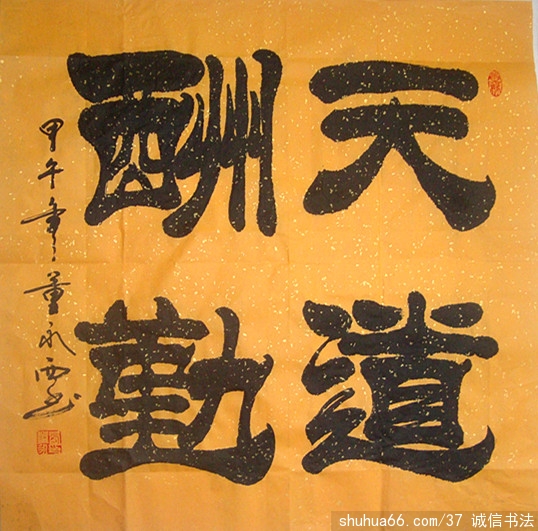 天道
酬勤
甲午年董永西书
shuhua66.com/37 诚信书法